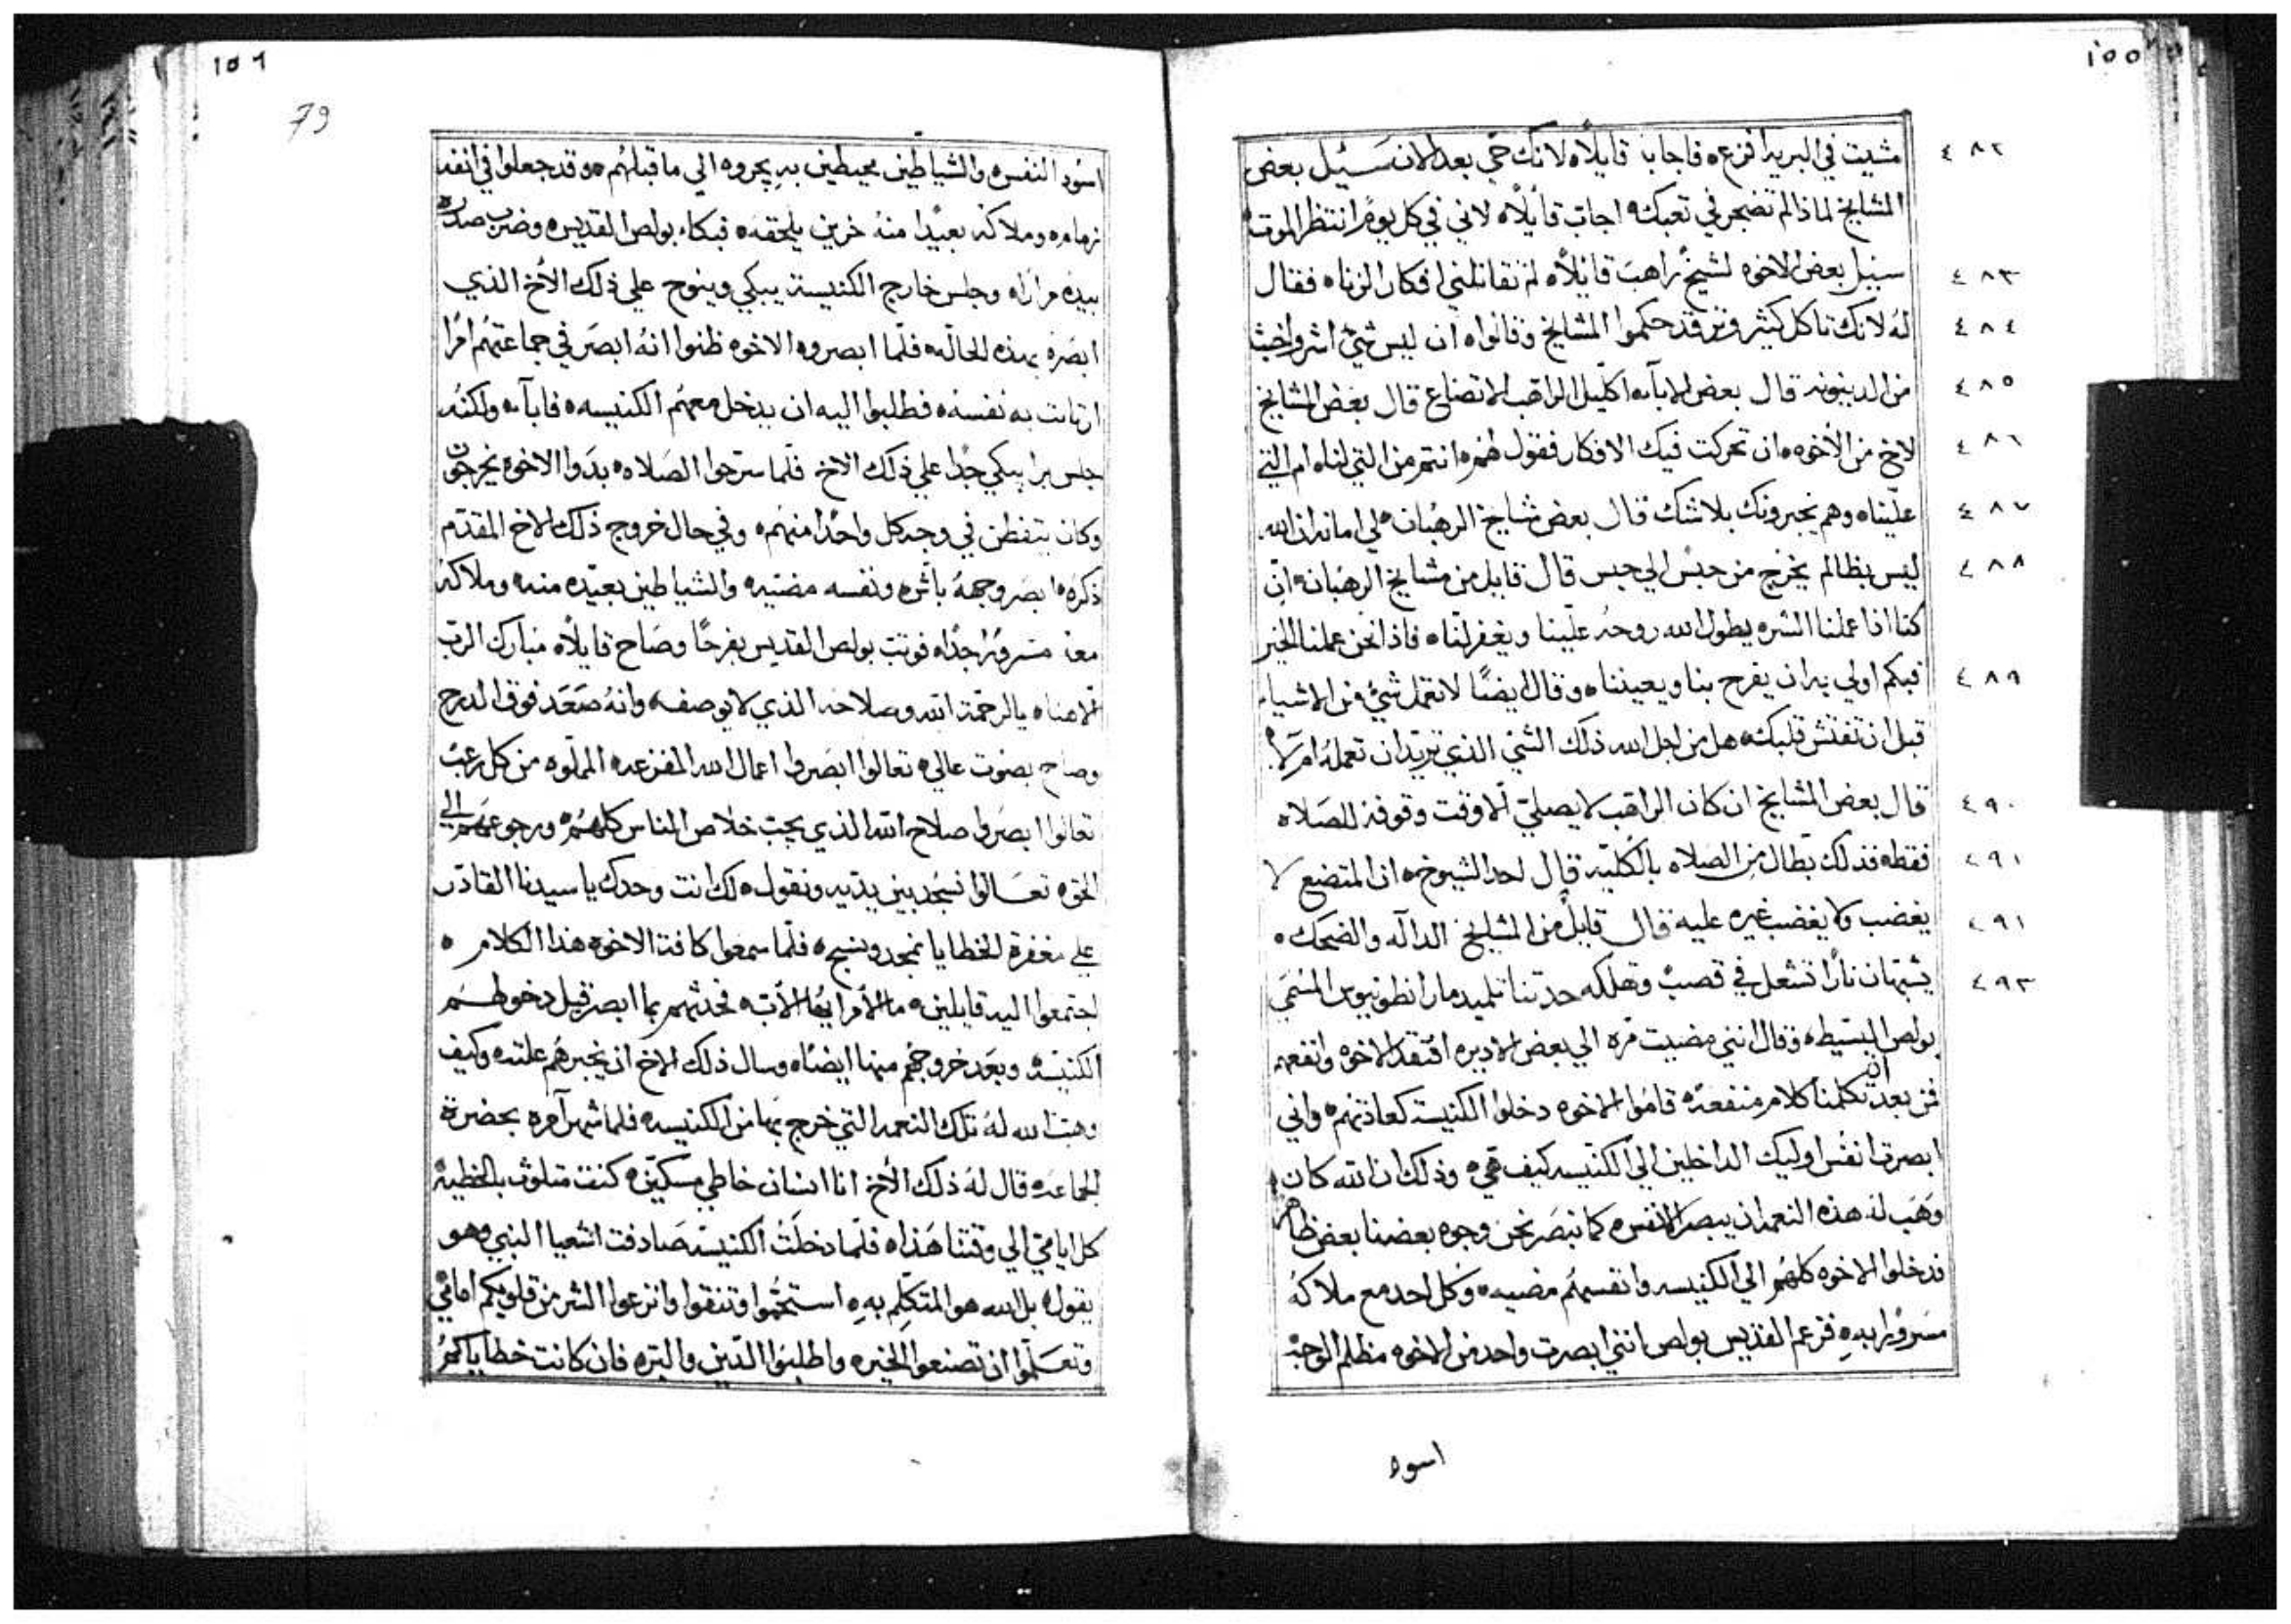 ١٥٥
مشيت في البريه افزع ه فاجابا قايلاً ه لانك حي بعد الان سَئيل بعض
٤٨٢
المشايخ لماذا لم تضجر في تعبك ه اجاب قايلاً ه لاني في كل يوم انتظر الموت ه
سئيل بعض الاخوه لشيخ راهب قايلاً ه لم تقاتلني افكار الزنا ه فقال
٤٨٣
له لانك تاكل كثير وترقد حكموا المشايخ وقالوا ه ان ليس شي اشر واخبث
٤٨٤
من الدينونه قال بعض الاباء ه اكليل الراهب الاتضاع قال بعض المشايخ
٤٨٥
لاخ من الاخوه ه ان تحركت فيك الافكار فقول لهم ه انتم من التي لنا ه ام التي
٤٨٦
علينا ه وهم يخبرونك بلا شك قال بعض مشايخ الرهبان ه لي امانه ان الله
٤٨٧
ليس بظالم يخرج من حبس الي حبس قال قايل من مشايخ الرهبان ه ان
٤٨٨
كنا اذا عملنا الشر ه يطول الله روحه علينا ويغفر لنا ه فاذا نحن عملنا الخير
فبكم اولي به ان يفرح بنا ويعيننا ه وقال ايضًا لا تعمل شيُ من الاشياء
٤٨٩
قبل ان تفتش قلبك ه هل من اجل الله ذلك الشي الذي تريد ان تعمله ام لا ه
قال بعض المشايخ ان كان الراهب لا يصلي الا وقت وقوفه للصلاه
٤٩٠
فقط ه فذلك بطال من الصلاه بالكليه قال احد الشيوخ ه ان المتضع لا
٤٩١
يغضب ولا يغضب غيره عليه قال قايل من المشايخ الداله والضحك ه
٤٩١
يشبهان نارًا تشعل في قصب وتهلكه حدثنا تلميد مار انطونيوس المسمي
٤٩٣
بولص البسيط ه وقال انني مضيت مره الي بعض الاديره افتقد الاخوه وانفعهم
فمن بعد ان تكلمنا كلام منفعه ه قاموا الاخوه دخلوا الكنيسة كعادتهم ه واني
ابصرت انفس اوليك الداخلين الي الكنيسه كيف هي ه وذلك ان الله كان
وهَب له هذه النعمه ان يبصر الانفس ه كما نبصَر نحن وجوه بعضنا بعض ظاهر
فدخلوا الاخوه كلهم الي الكنيسه وانفسهم مضيه ه وكل احد مع ملاكه
مسرورًا به ه فزعم القديس بولص انني ابصرت واحد من الاخوه مظلم الوجه
اسود
١٥٦
79
اسود النفس ه والشياطين محيطين به يجروه الي ما قبلهم ه وقد جعلوا في انفه
زمام ه وملاكه بعيدًا منه حزين يلحقه ه فبكاء بولص القديس ه وضرب صدره
بيده مرارًا ه وجلس خارج الكنيسة يبكي وينوح علي ذلك الأخ الذي
ابصره بهذه الحاله ه فلما ابصروه الاخوه ظنوا انه ابصَر في جماعتهم امرًا
ارتابت به نفسه ه فطلبوا اليه ان يدخل معهم الكنيسه ه فاباء ه ولكنه
جلس برا يبكي جدًا علي ذلك الاخ فلما سرحوا الصَلاه ه بدَوا الاخوه يخرجون
وكان يتفطن في وجه كل واحدًا منهم ه وفي حال خروج ذلك الاخ المقدم
ذكره ه ابصَر وجهه باشره ونفسه مضيه والشياطين بعيده منه وملاكه
معه مسرورًا جدًا ه فوثب بولص القديس بفرحًا وصَاح قايلاً ه مبارك الرب
الاهنا ه يا لرحمة الله وصلاحه الذي لا يوصف ه وانه صَعَد فوق الدرج
وصاح بصوت عالي ه تعالوا ابصَروا اعمال الله المفزعه ه المملوه من كل رعب
تعالوا ابصَروا صلاح الله الذي يحب خلاص الناس كلهُم ه ورجوعهم الي
الحق ه تعَالوا نسجد بين يديه ونقول ه لك انت وحدك يا سيدنا القادر
علي مغفرة الخطايا نمجد ونسبح ه فلما سمعوا كافة الاخوه هذا الكلام ه
اجتمعوا اليه قايلين ه ما الامر ايها الاب ه فحدثهم بما ابصر قبل دخولهم
الكنيسة وبعَد خروجهم منها ايضًا ه وسال ذلك الاخ ان يخبرهم علته ه وكيف
وهب الله لهُ تلك النعمه التي خرج بها من الكنيسه ه فلما شهر امره بحضرة
الجماعه ه قال لهُ ذلك الأخ انا انسان خاطي مسكين ه كنت متلوث بالخطية
كل ايامي الي وقتنا هَذا ه فلما دخلت الكنيسة صَادفت اشعيا النبي وهو
يقول ه بل الله هو المتكلم به ه استحموا وتنقوا وانزعوا الشر من قلوبكم امامي
وتعَلموا ان تصنعوا الخير ه واطلبوا الدين والبر ه فان كانت خطاياكم